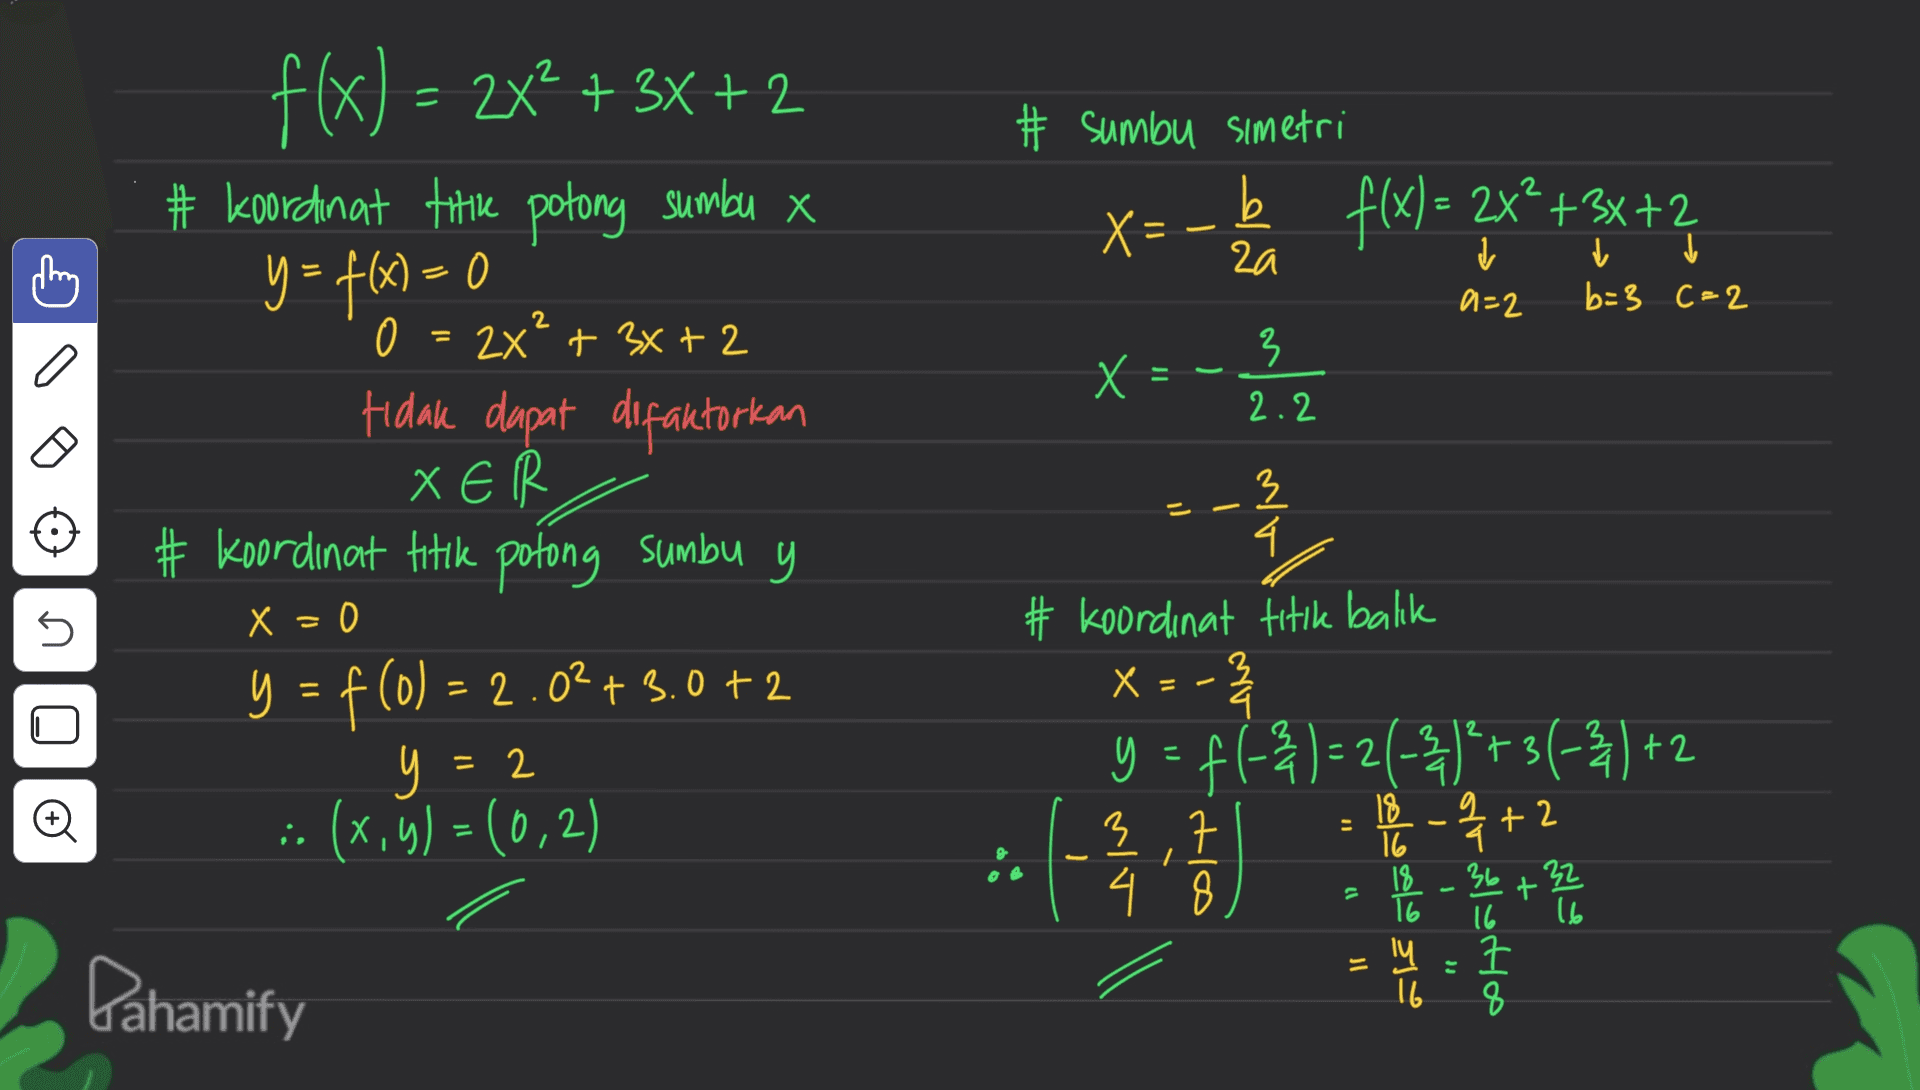 f(x) = 2x² + 3x + 2
# koordinat titik potong sumbu x
y = f(x) = 0
0 = 2x² + 3x + 2
tidak dapat difaktorkan
x ∈ ℝ
# koordinat titik potong sumbu y
x = 0
y = f(0) = 2.0² + 3.0 + 2
y = 2
∴ (x,y) = (0,2)
# sumbu simetri
x = - b/2a f(x) = 2x² + 3x + 2
↓ ↓ ↓
a=2 b=3 c=2
x = - 3/2.2
= - 3/4
# koordinat titik balik
x = - 3/4
y = f(-3/4) = 2(-3/4)² + 3(-3/4) + 2
= 18/16 - 9/4 + 2
= 18/16 - 36/16 + 32/16
= 14/16 = 7/8
∴ (- 3/4, 7/8)
Pahamify